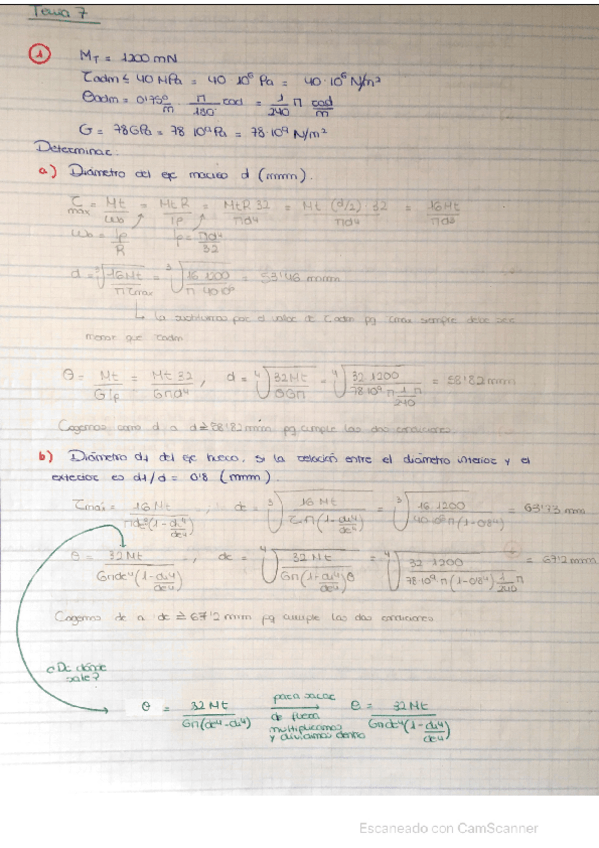 Tema 7
1 M_T = 1200 mN
τadm ≤ 40 MPa = 40 · 10⁶ Pa = 40 · 10⁶ N/m²
θadm = 0'75°/m · π/180 rad = 1/240 π rad/m
G = 78GPa = 78 · 10⁹ Pa = 78 · 10⁹ N/m²
Determinar.
a) Diámetro del eje macizo d (mm).
τ max = Mt/Wo = Mt R/Ip = Mt R 32/πd⁴ = Mt (d/2) · 32/πd⁴ = 16Mt/πd³
Wo = Ip/R Ip = πd⁴/32
d = ³√(16Mt/π τmax) = ³√(16 · 1200/π 40·10⁶) = 53'46 mm
↳ la sustituimos por el valor de τadm pq τmax siempre debe ser
menor que τadm
θ = Mt/G Ip = Mt 32/Gπd⁴, d = ⁴√(32Mt/θGπ) = ⁴√(32 · 1200/78·10⁹ π 1/240 π) = 58'82 mm
Cogemos como d a d ≥ 58'82 mm pq cumple las dos condiciones.
b) Diámetro d1 del eje hueco, si la relación entre el diámetro interior y el
exterior es d1/d = 0'8 (mm).
τmax = 16 Mt/πde³(1 - du⁴/de⁴), de = ³√(16 Mt/τ·π(1 - du⁴/de⁴)) = ³√(16 · 1200/40·10⁶ π(1-0'8⁴)) = 63'73 mm
θ = 32Mt/Gπde⁴(1 - du⁴/de⁴), de = ⁴√(32 Mt/Gπ(1 - du⁴/de⁴)θ) = ⁴√(32 · 1200/78·10⁹ π(1-0'8⁴) 1/240 π) = 67'2 mm
Cogemos de a de ≥ 67'2 mm pq cumple las dos condiciones
¿De dónde
sale?
θ = 32Mt/Gπ(de⁴-du⁴) para sacar de fuera multiplicamos y dividimos dentro → θ = 32Mt/Gπde⁴(1 - du⁴/de⁴)
Escaneado con CamScanner